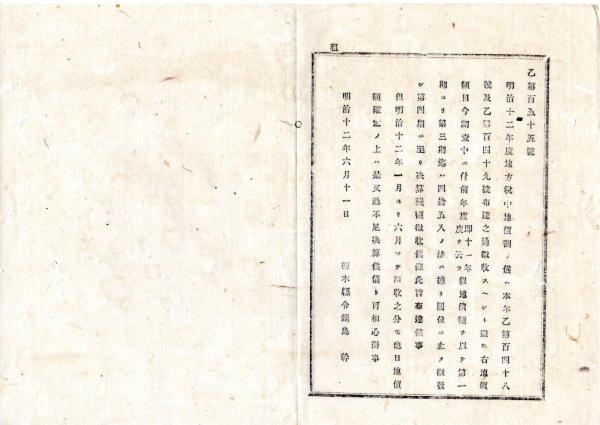 租
乙第百五十五號
明治十二年度地方稅中地價割ノ儀ハ本年乙第百四十八
號及乙第百四十九號布達之通徵收スヘシト雖モ右地價
額目今調査中ニ付前年度卽十一年度ヲ云フ假地價額ヲ以テ第一
期ヨリ第三期迄ハ四捨五入ノ法ニ據リ圓位ニ止メ徵收
シ第四期ニ至リ決算殘額徵收候條此旨布達候事
但明治十二年一月ヨリ六月マテ徵收之分モ他日地價
額確定ノ上ハ是又過不足決算候儀ト可相心得事
明治十二年六月十一日
栃木縣令鍋島 幹